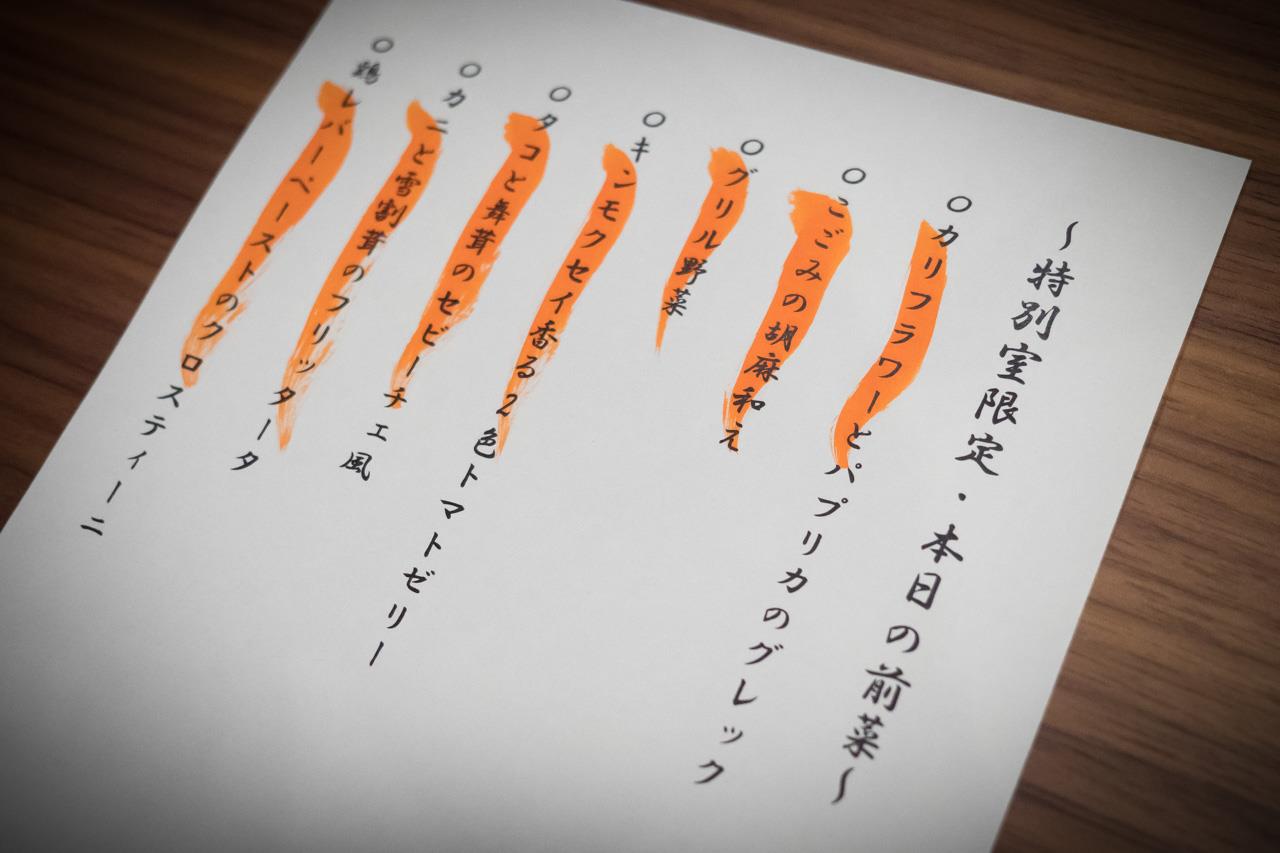 〜特別室限定・本日の前菜〜
○カリフラワーとパプリカのグレック
○こごみの胡麻和え
○グリル野菜
○キンモクセイ香る2色トマトゼリー
○タコと舞茸のセビーチェ風
○カニと雪割茸のフリッタータ
○鶏レバーペーストのクロスティーニ